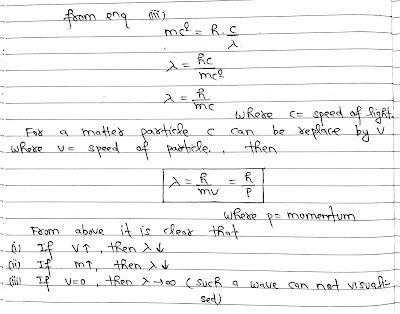 from enq (iii)
mc² = h. c/λ
λ = hc/mc²
λ = h/mc
where c= speed of light.
For a matter particle c can be replace by v
where v= speed of particle., then
λ = h/mv = h/p
where p= momentum
From above it is clear that
(i) If v↑, then λ↓
(ii) If m↑, then λ↓
(iii) If v=0, then λ→∞ (such a wave can not visuali-
sed)